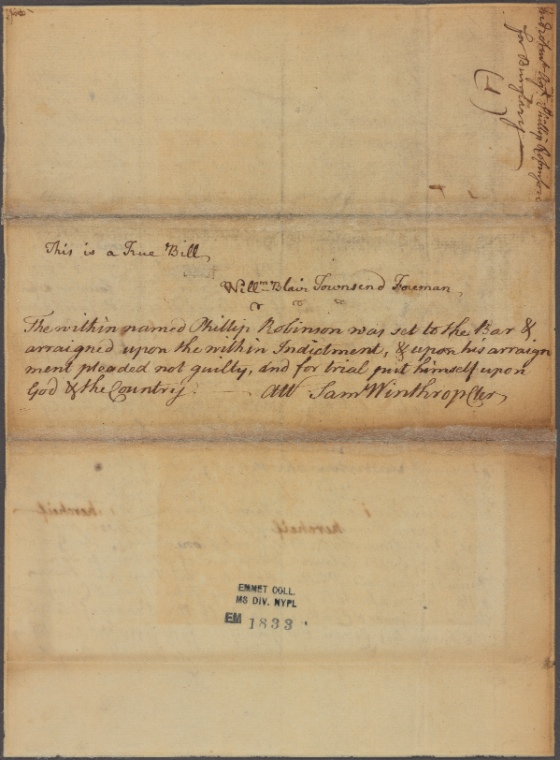 Indictmt agt Phillip Robinson
for Burglary
(4)
This is a True Bill,
Willm Blair Townsend Foreman,
The within named Phillip Robinson was set to the Bar &
arraigned upon the within Indictment, & upon his arraign
ment pleaded not guilty, and for trial put himself upon
God & the Country. Att Saml Winthrop Cler,
kercheif
kercheif
one
EMMET COLL.
MS DIV. NYPL
EM 1833